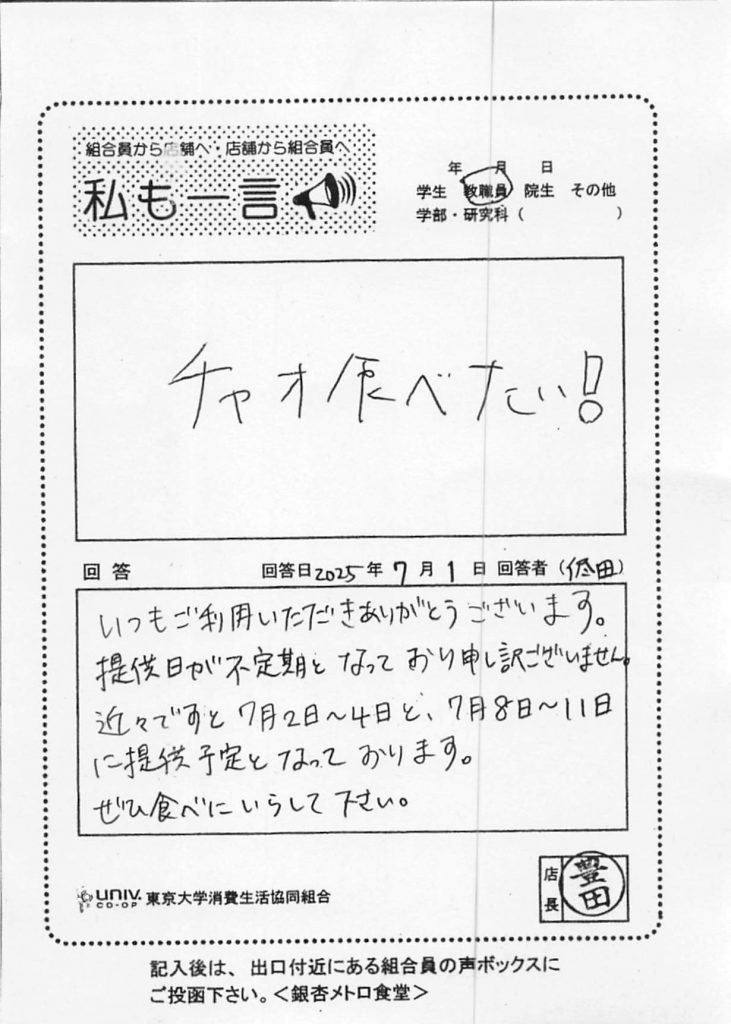 組合員から店舗へ・店舗から組合員へ
私も一言
年 月 日
学生 教職員 院生 その他
学部・研究科( )
チャオ食べたい!
回答 回答日2025年7月1日 回答者(依田)
いつもご利用いただきありがとうございます。
提供日が不定期となっており申し訳ございません。
近々ですと7月2日〜4日と、7月8日〜11日
に提供予定となっております。
ぜひ食べにいらして下さい。
店長 豊田
UNIV. CO-OP 東京大学消費生活協同組合
記入後は、出口付近にある組合員の声ボックスに
ご投函下さい。<銀杏メトロ食堂>